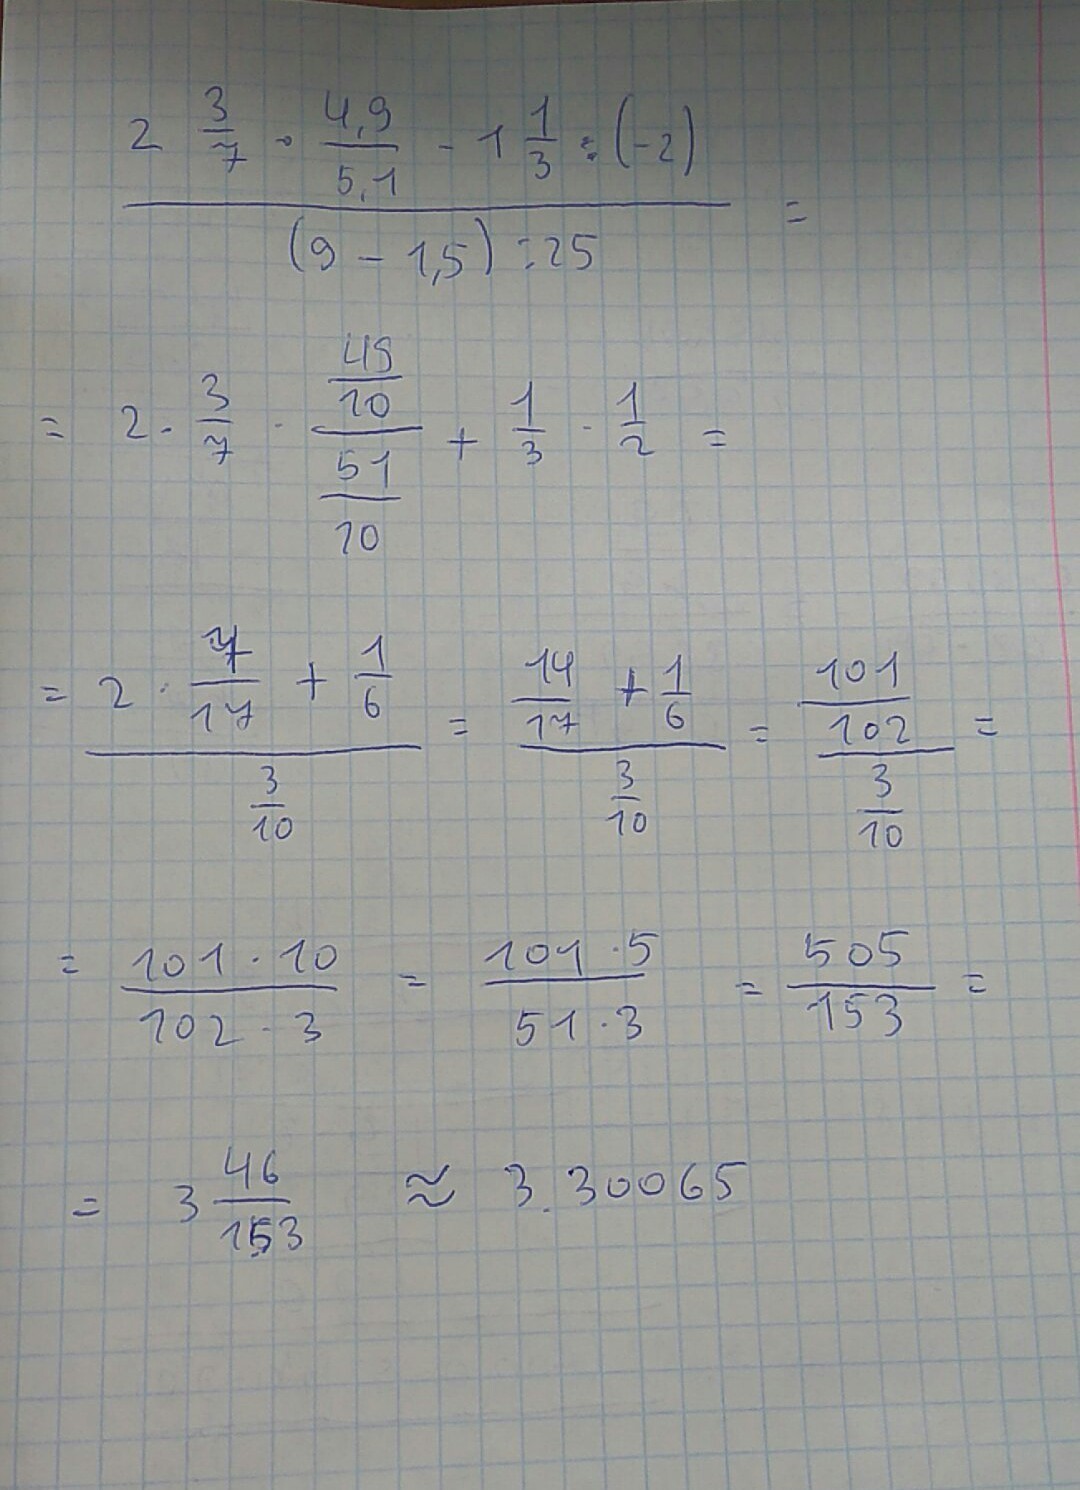 2 3/7 · 4,9/5,1 - 1 1/3 : (-2)
(9 - 1,5) : 25 =
= 2 · 3/7 · 49/10 / 51/10 + 1/3 · 1/2 =
= 2 · 7/17 + 1/6 / 3/10 = 14/17 + 1/6 / 3/10 = 101/102 / 3/10 =
= 101 · 10 / 102 · 3 = 101 · 5 / 51 · 3 = 505/153 =
= 3 46/153 ≈ 3.30065